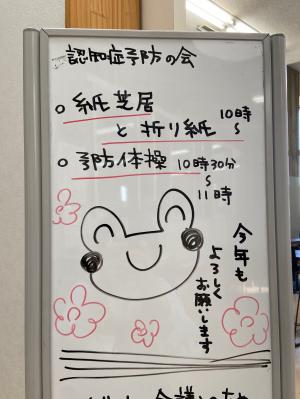 認知症予防の会
○ 紙芝居
と 折り紙 10時
〜
○ 予防体操 10時30分
〜
11時
今年も
よろしく
お願いします